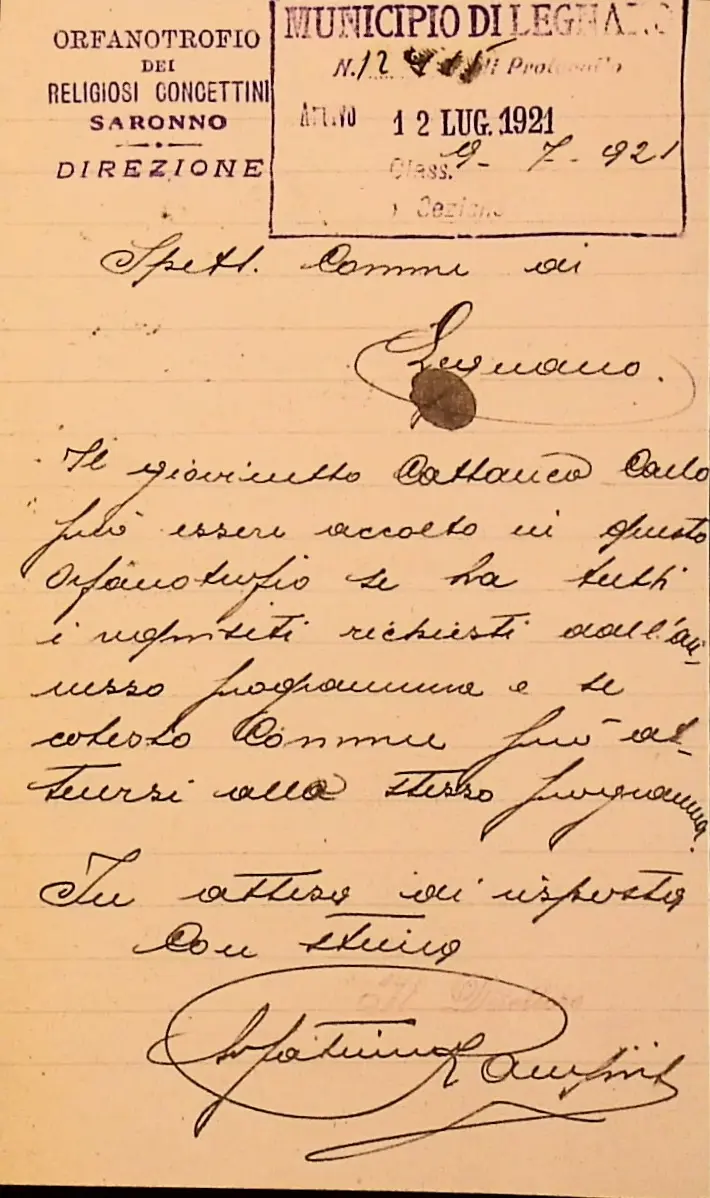 ORFANOTROFIO
DEI
RELIGIOSI CONCETTINI
SARONNO
DIREZIONE
MUNICIPIO DI LEGNANO
N. 12 di Protocollo
Arrivo 12 LUG. 1921
Class. 9-7-921
Sezione
Spett. Comune di
Legnano.
Il giovinetto Cattaneo Carlo
può essere accolto in questo
Orfanotrofio se ha tutti
i requisiti richiesti dall'an-
nesso programma e se
cotesto Comune può at-
tenersi allo stesso programma.
In attesa di risposta
Con stima
Il Direttore